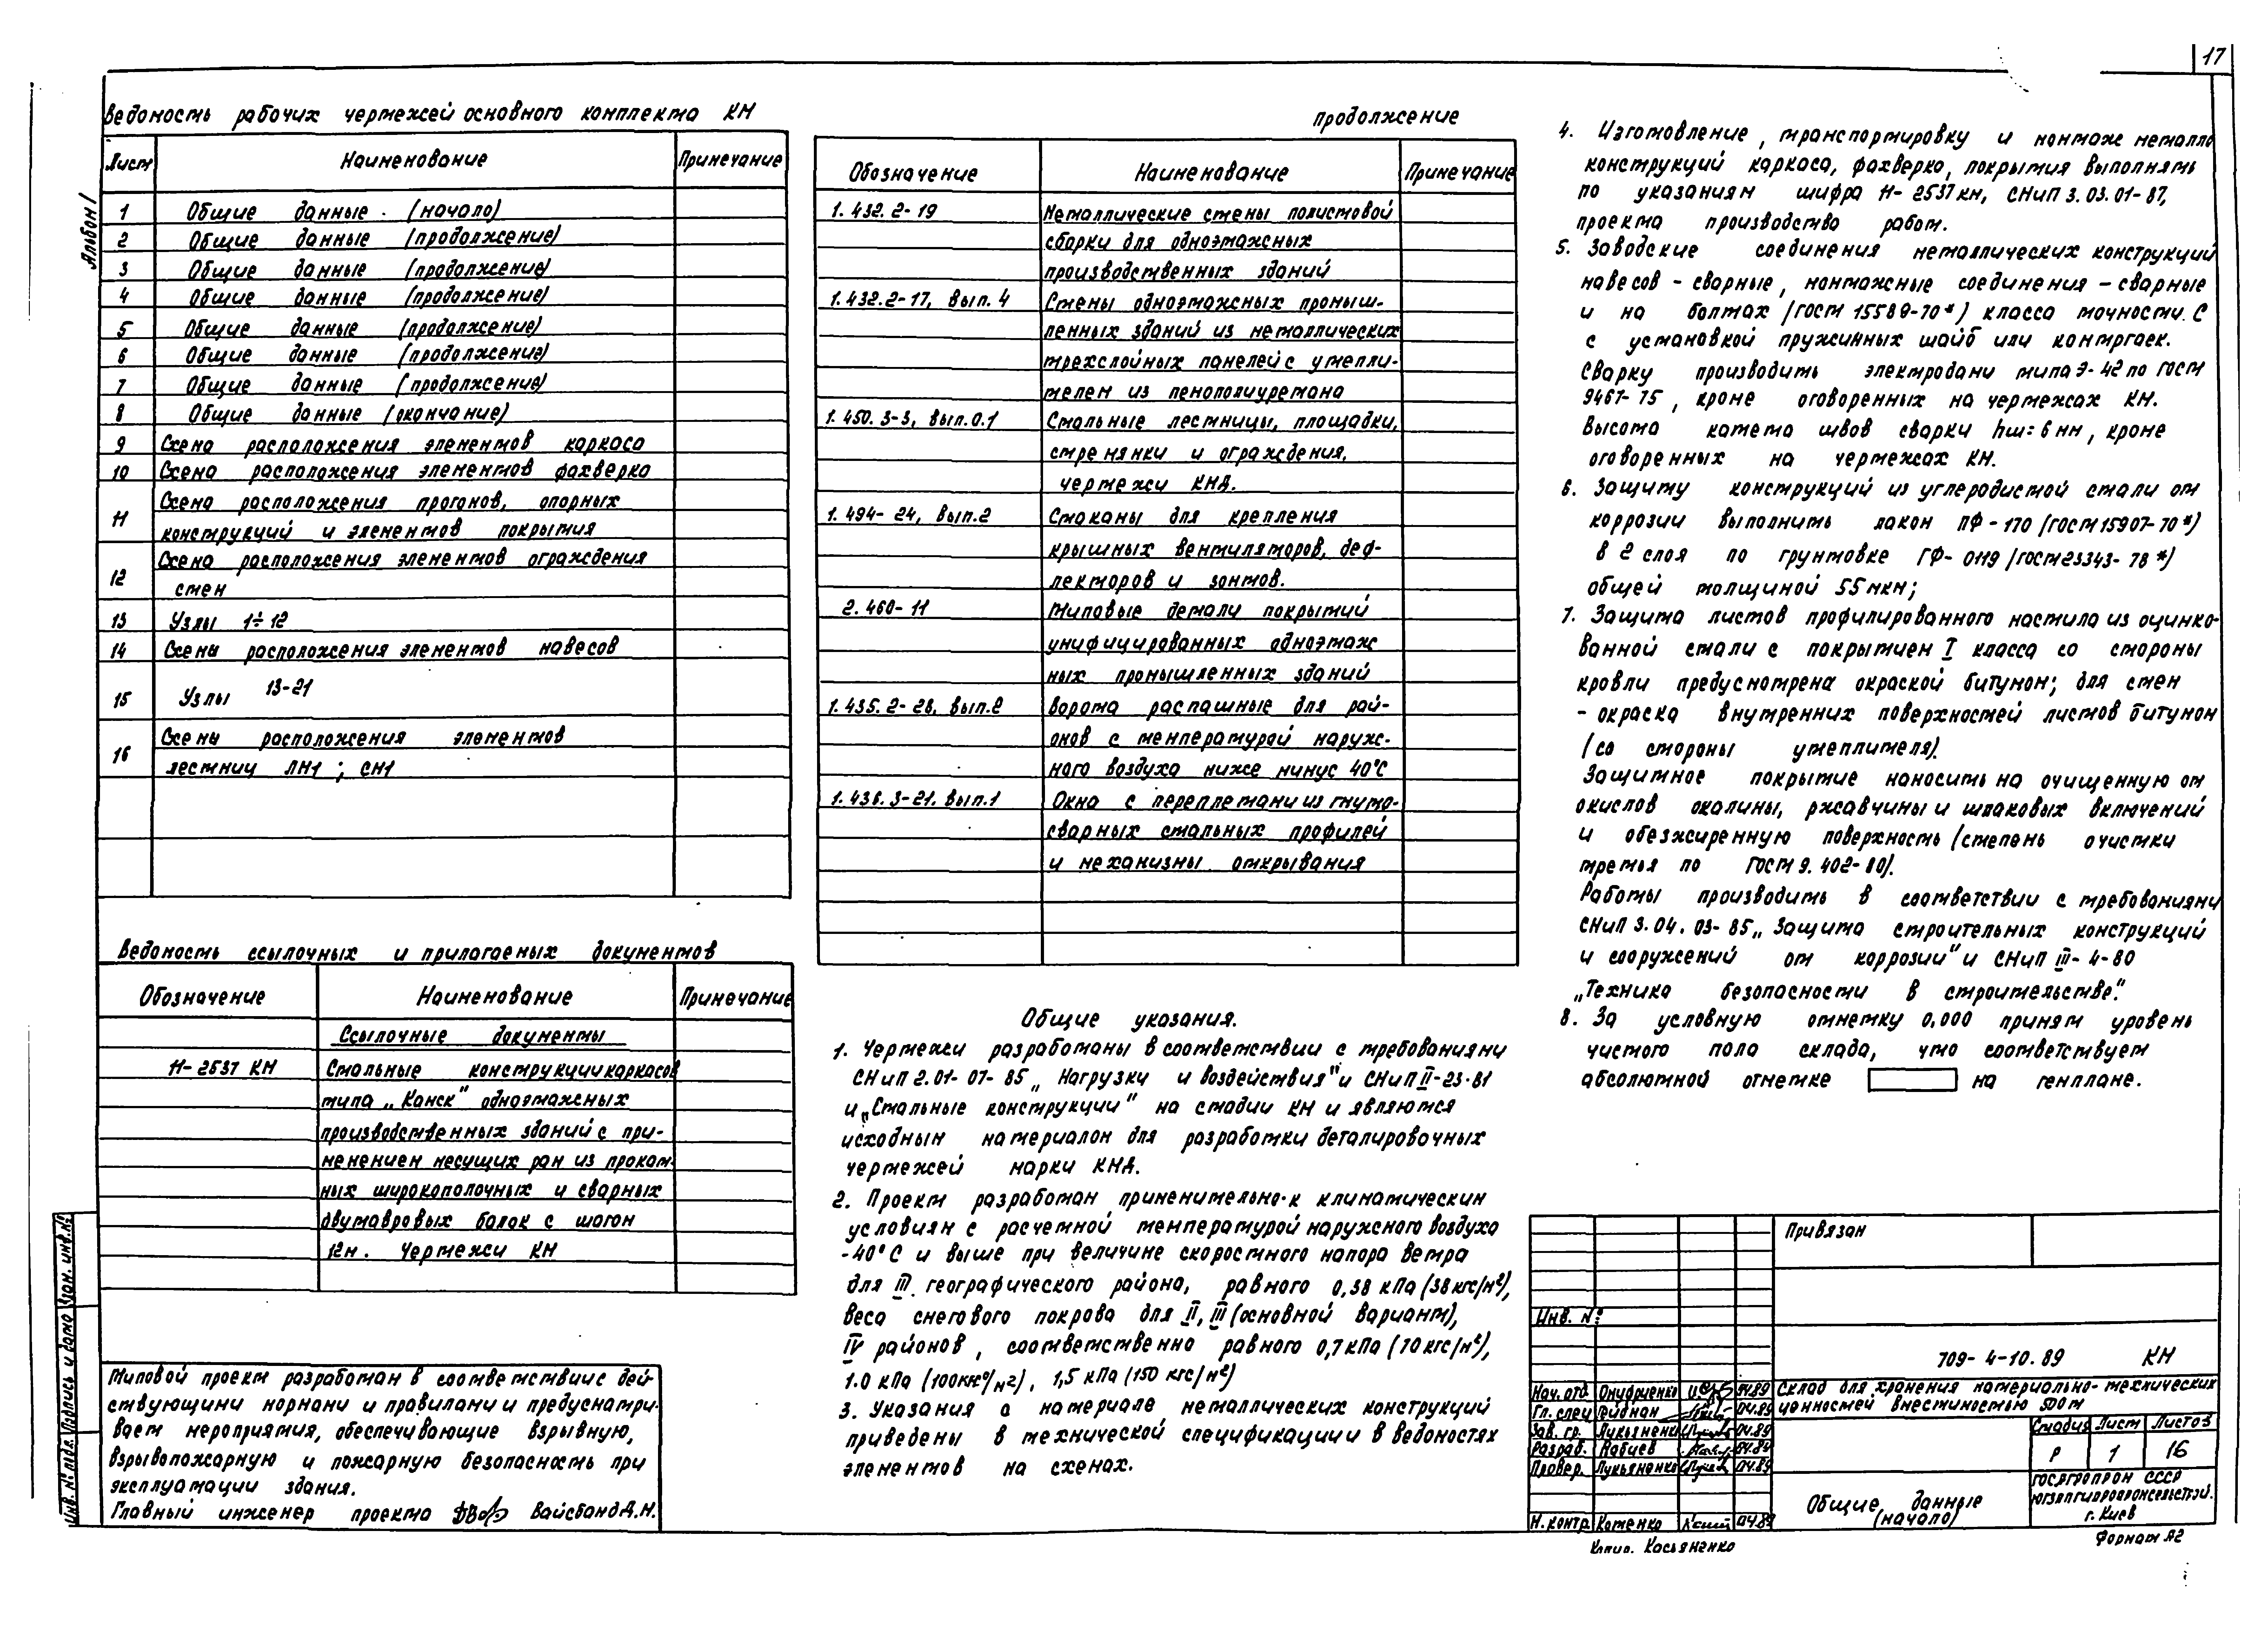 17
Альбом I
Ведомость рабочих чертежей основного комплекта КМ
Лист Наименование Примечание
1 Общие данные (начало)
2 Общие данные (продолжение)
3 Общие данные (продолжение)
4 Общие данные (продолжение)
5 Общие данные (продолжение)
6 Общие данные (продолжение)
7 Общие данные (продолжение)
8 Общие данные (окончание)
9 Схема расположения элементов каркаса
10 Схема расположения элементов фахверка
11 Схема расположения прогонов, опорных
конструкций и элементов покрытия
12 Схема расположения элементов ограждения
стен
13 Узлы 1÷12
14 Схемы расположения элементов навесов
15 Узлы 13-21
16 Схемы расположения элементов
лестниц ЛМ1 ; СМ1
Ведомость ссылочных и прилагаемых документов
Обозначение Наименование Примечание
Ссылочные документы
11-2537 КМ Стальные конструкции каркасов
типа „Канск" одноэтажных
производственных зданий с при-
менением несущих рам из прокат-
ных широкополочных и сварных
двутавровых балок с шагом
12м. Чертежи КМ
Типовой проект разработан в соответствии с дей-
ствующими нормами и правилами и предусматри-
вает мероприятия, обеспечивающие взрывную,
взрывопожарную и пожарную безопасность при
эксплуатации здания.
Главный инженер проекта Вайсбанд Д.М.
Инв. № подл. Подпись и дата Взам. инв. №
продолжение
Обозначение Наименование Примечание
1.432.2-19 Металлические стены полистовой
сборки для одноэтажных
производственных зданий
1.432.2-17, вып. 4 Стены одноэтажных промыш-
ленных зданий из металлических
трехслойных панелей с утепли-
телем из пенополиуретана
1.450.3-3, вып.0.1 Стальные лестницы, площадки,
стремянки и ограждения.
чертежи КМД.
1.494-24, вып.2 Стаканы для крепления
крышных вентиляторов, деф-
лекторов и зонтов.
2.460-11 Типовые детали покрытий
унифицированных одноэтаж
ных промышленных зданий
1.435.2-28, вып.2 Ворота распашные для рай-
онов с температурой наруж-
ного воздуха ниже минус 40°С
1.436.3-21. вып.1 Окна с переплетами из гнуто-
сварных стальных профилей
и механизмы открывания
Общие указания.
1. Чертежи разработаны в соответствии с требованиями
СНиП 2.01-07-85 „Нагрузки и воздействия" и СНиП II-23-81
и „Стальные конструкции" на стадии КМ и являются
исходным материалом для разработки деталировочных
чертежей марки КМД.
2. Проект разработан применительно к климатическим
условиям с расчетной температурой наружного воздуха
-40°С и выше при величине скоростного напора ветра
для III географического района, равного 0,38 кПа (38 кгс/м²),
веса снегового покрова для II, III (основной вариант),
IV районов, соответственно равного 0,7 кПа (70 кгс/м²),
1.0 кПа (100кгс/м²), 1,5 кПа (150 кгс/м²)
3. Указания о материале металлических конструкций
приведены в технической спецификации и в ведомостях
элементов на схемах.
4. Изготовление, транспортировку и монтаж металло
конструкций каркаса, фахверка, покрытия выполнять
по указаниям шифра 11-2537км, СНиП 3.03.01-87,
проекта производства работ.
5. Заводские соединения металлических конструкций
навесов - сварные, монтажные соединения - сварные
и на болтах (ГОСТ 15589-70*) класса точности С
с установкой пружинных шайб или контргаек.
Сварку производить электродами типа Э-42 по ГОСТ
9467-75, кроме оговоренных на чертежах КМ.
Высота катета швов сварки hш=6 мм, кроме
оговоренных на чертежах КМ.
6. Защиту конструкций из углеродистой стали от
коррозии выполнить лаком ПФ-170 (ГОСТ 15907-70*)
в 2 слоя по грунтовке ГФ-0119 (ГОСТ 23343-78*)
общей толщиной 55мкм;
7. Защита листов профилированного настила из оцинко-
ванной стали с покрытием I класса со стороны
кровли предусмотрена окраской битумом; для стен
- окраска внутренних поверхностей листов битумом
(со стороны утеплителя).
Защитное покрытие наносить на очищенную от
окислов окалины, ржавчины и шлаковых включений
и обезжиренную поверхность (степень очистки
третья по ГОСТ 9.402-80).
Работы производить в соответствии с требованиями
СНиП 3.04.03-85 „Защита строительных конструкций
и сооружений от коррозии" и СНиП III-4-80
„Техника безопасности в строительстве".
8. За условную отметку 0.000 принят уровень
чистого пола склада, что соответствует
абсолютной отметке на генплане.
Привязан
Инв. №
709-4-10.89 КМ
Нач. отд. Онуфриенко 04.89
Гл. спец. Гейдман 04.89
Зав. гр. Лукьяненко 04.89
Разраб. Бабиев 04.89
Провер. Лукьяненко 04.89
Н. контр. Котенко 04.89
Склад для хранения материально-технических
ценностей вместимостью 500т
Стадия Лист Листов
Р 1 16
Общие данные
(начало)
Госагропром СССР
г. Киев
Копир. Касьяненко
Формат А2